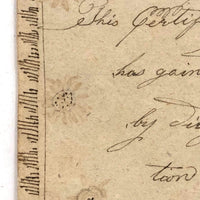 This Certif
has gain
by di
tion